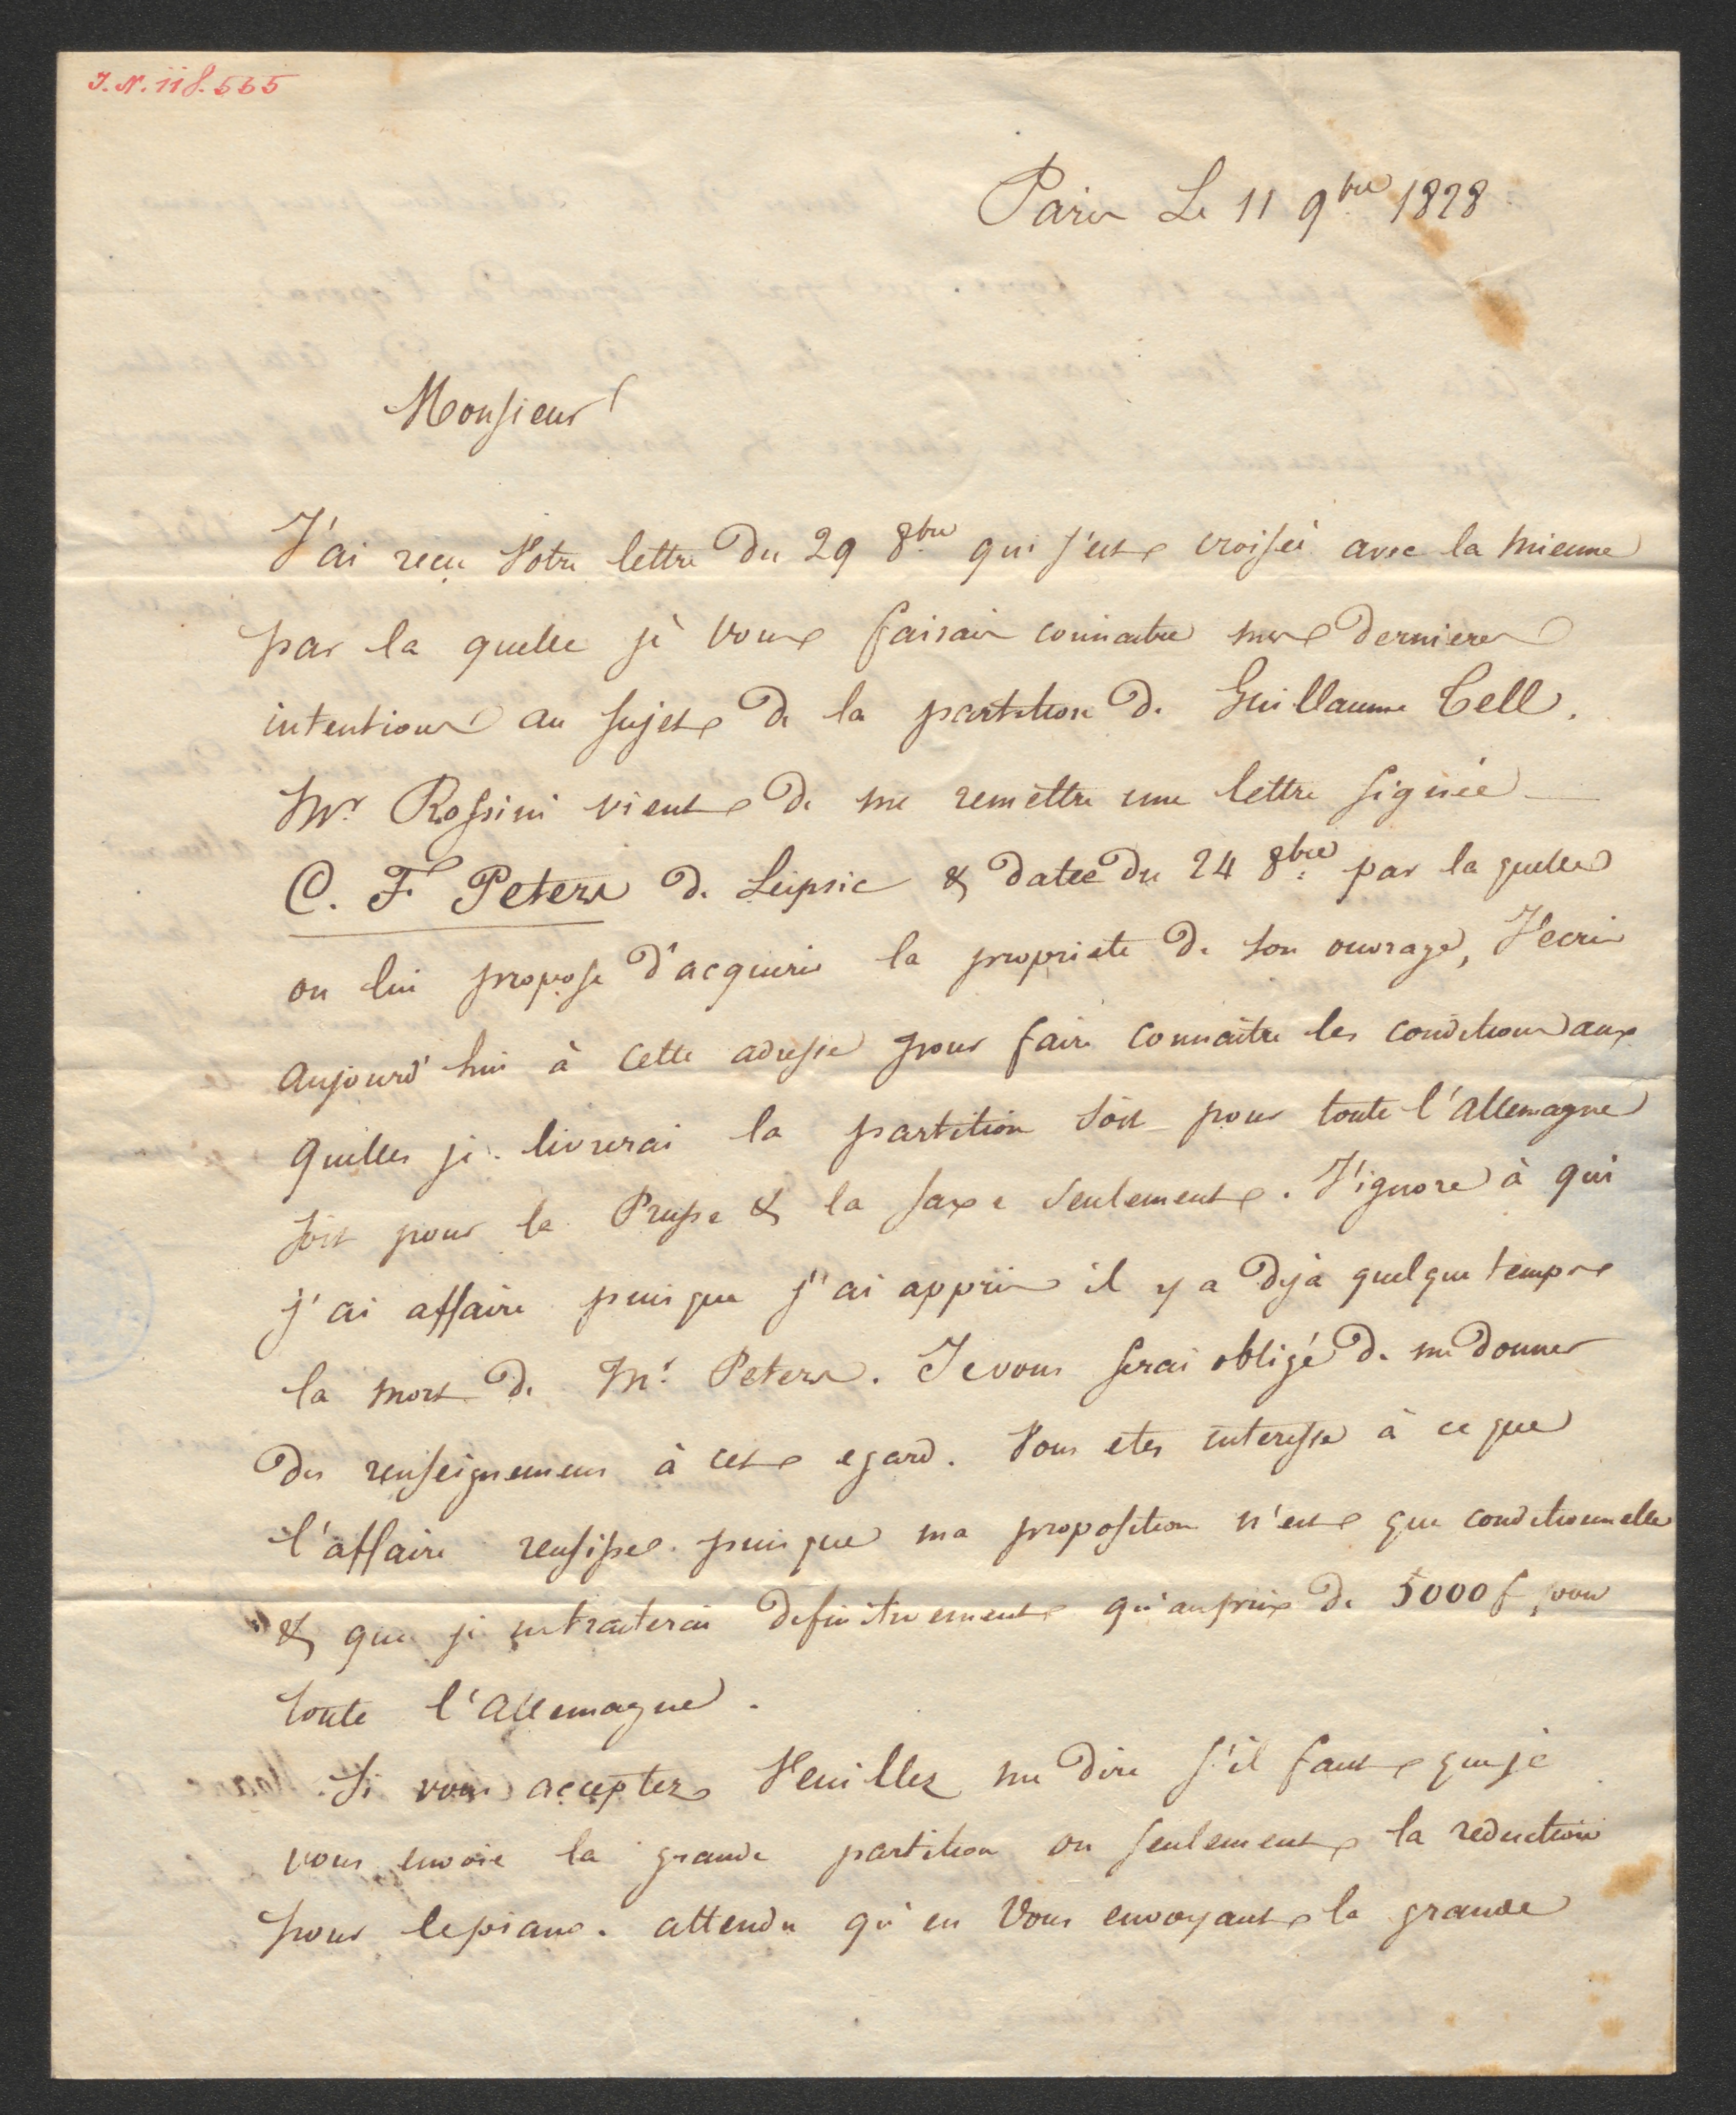 J.N. 118.555
Paris Le 11 9bre 1828
Monsieur
J'ai reçu Votre lettre du 29 8bre qui s'est croisée avec la mienne
par la quelle je vous faisais connaitre mes dernieres
intentions au sujet de la partition de Guillaume Tell.
Mr. Rossini vient de me remettre une lettre signée
C. F. Peters de Leipsic & datée du 24 8bre par la quelle
on lui propose d'acquerir la propriete de son ouvrage, J'ecris
aujourd'hui à cette adresse pour faire connaitre les conditions aux
quelles je livrerai la partition soit pour toute l'allemagne
soit pour la Prusse & la saxe seulement. J'ignore à qui
j'ai affaire puisque j'ai appris il y a dejà quelque temps
la mort de Mr. Peters. Je vous serai obligé de me donner
des renseignemens à cet egard. Vous etes interessé à ce que
l'affaire reusisse puisque ma proposition n'est que conditionnelle
& que je ne traiterai definitivement qu'au prix de 5000 f pour
toute l'allemagne.
Si vous acceptez Veuillez me dire s'il faut que je
vous envoie la grande partition ou seulement la reduction
pour le piano. attendu qu'en Vous envoyant la grande